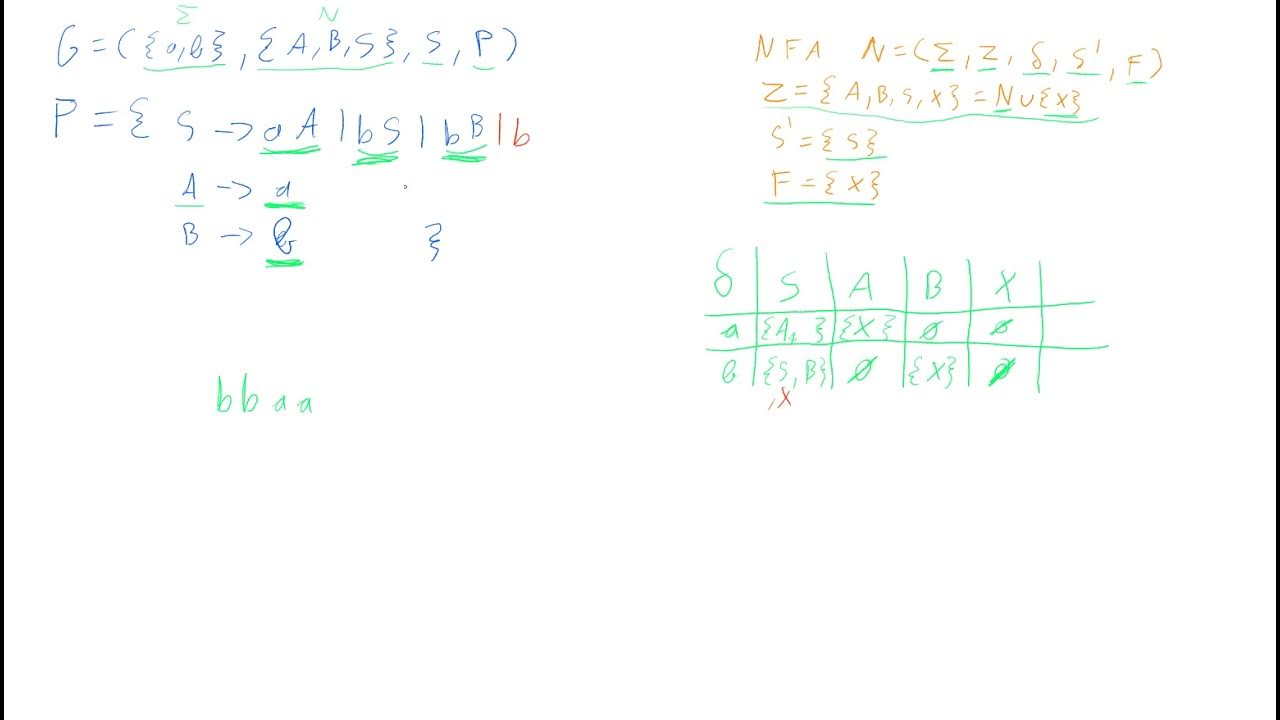 Σ N
G = ({a,b}, {A,B,S}, S, P)
P = { S -> aA | bS | bB | b
A -> a
B -> b }
bbaa
NFA N = (Σ, Z, δ, S', F)
Z = {A,B,S,X} = N ∪ {X}
S' = {S}
F = {X}
δ S A B X
a {A, } {X} ∅ ∅
b {S,B} ∅ {X} ∅
,X